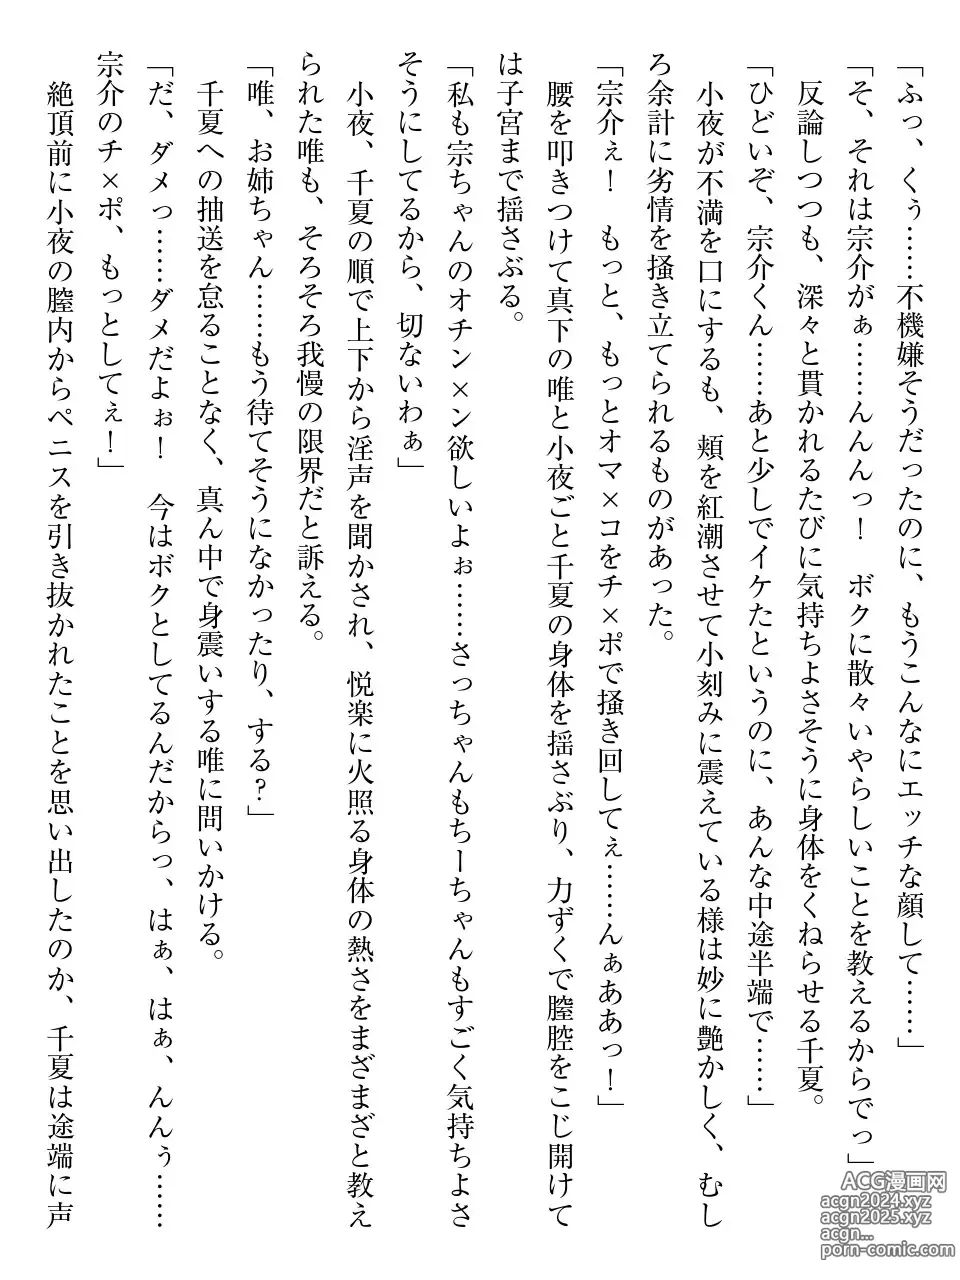 「ふっ、くぅ……不機嫌そうだったのに、もうこんなにエッチな顔して……」
「そ、それは宗介がぁ……んんんっ！　ボクに散々いやらしいことを教えるからでっ」
反論しつつも、深々と貫かれるたびに気持ちよさそうに身体をくねらせる千夏。
「ひどいぞ、宗介くん……あと少しでイケたというのに、あんな中途半端で……」
小夜が不満を口にするも、頬を紅潮させて小刻みに震えている様は妙に艶かしく、むし
ろ余計に劣情を掻き立てられるものがあった。
「宗介ぇ！　もっと、もっとオマ×コをチ×ポで掻き回してぇ……んぁああっ！」
腰を叩きつけて真下の唯と小夜ごと千夏の身体を揺さぶり、力ずくで膣腔をこじ開けて
は子宮まで揺さぶる。
「私も宗ちゃんのオチン×ン欲しいよぉ……さっちゃんもちーちゃんもすごく気持ちよさ
そうにしてるから、切ないわぁ」
小夜、千夏の順で上下から淫声を聞かされ、悦楽に火照る身体の熱さをまざまざと教え
られた唯も、そろそろ我慢の限界だと訴える。
「唯、お姉ちゃん……もう待てそうになかったり、する？」
千夏への抽送を怠ることなく、真ん中で身震いする唯に問いかける。
「だ、ダメっ……ダメだよぉ！　今はボクとしてるんだからっ、はぁ、はぁ、んんぅ……
宗介のチ×ポ、もっとしてぇ！」
絶頂前に小夜の膣内からペニスを引き抜かれたことを思い出したのか、千夏は途端に声
ACG漫画网
acgn2024.xyz
acgn2025.xyz
acgn...
porn-comic.com